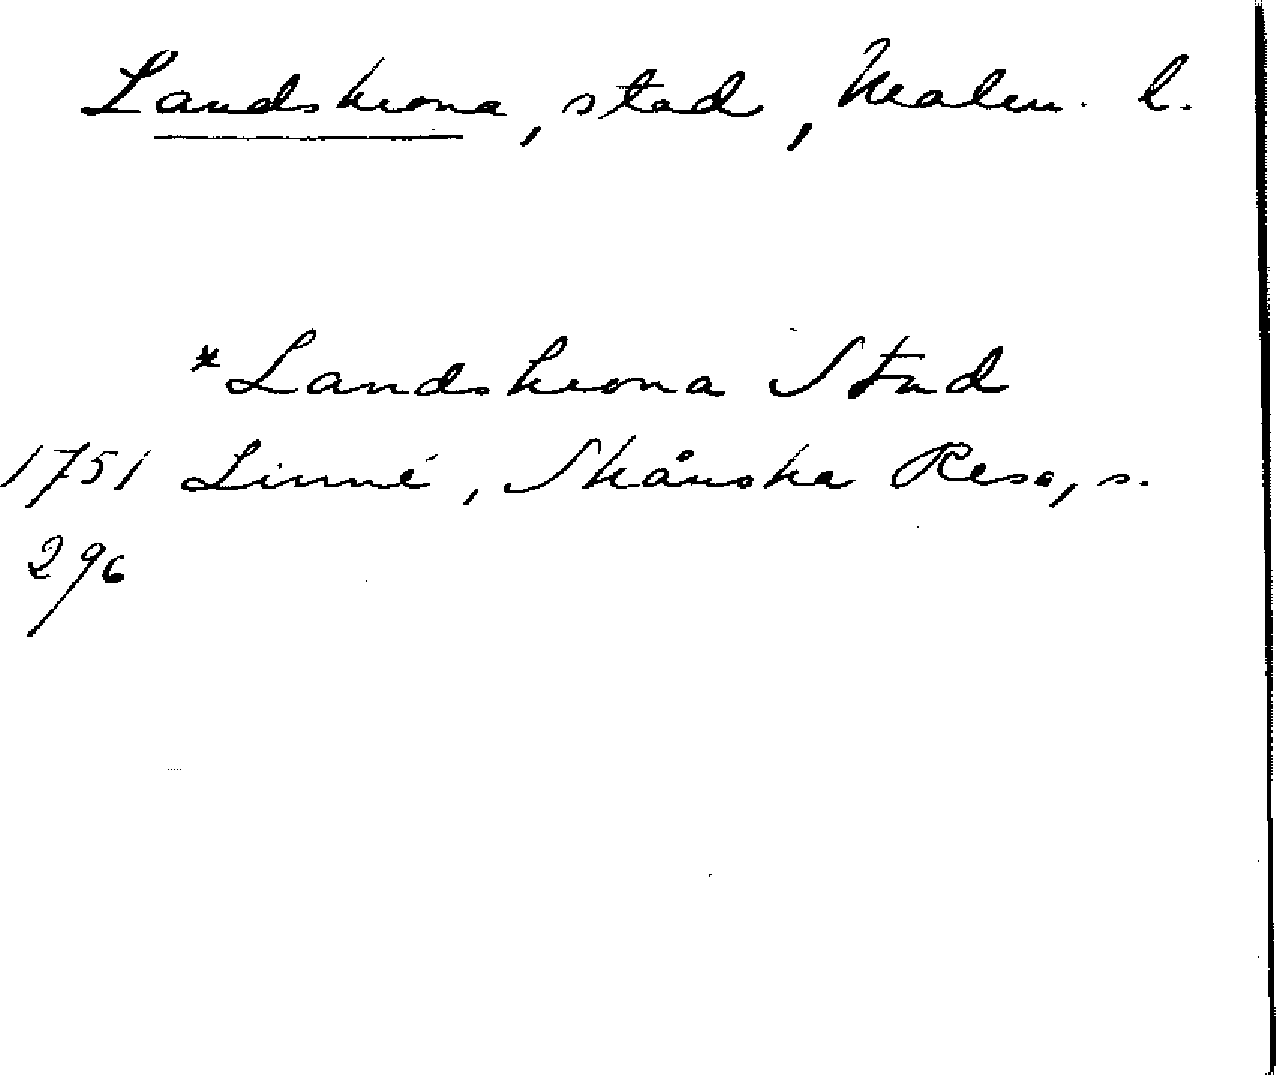 Landskrona, stad, Malm. l.
*Landskrona Stad
1751 Linné, Skånska Resa, s.
296